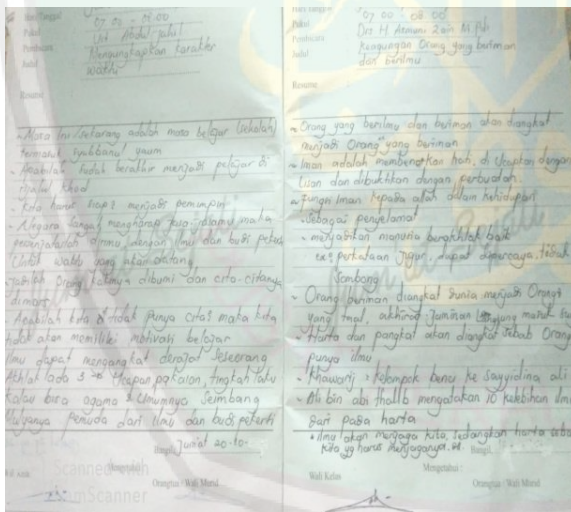 Hari/Tanggal
Pukul 07.00 - 08.00
Pembicara Ust Abdul Jalil
Judul Mengungkapkan karakter
waktu
Resume
- Masa ini/sekarang adalah masa belajar (sekolah)
termasuk syabbanul yaum
- Apabila sudah berakhir menjadi pelajar di
rijalul Khod
- Kita harus siap² menjadi pemimpin
- Negara sangat mengharap jasa-jasamu maka
penuhilah dirimu dengan ilmu dan budi pekerti
Untuk waktu yang akan datang
- Jadilah orang kakinya dibumi dan cita-citanya
dimars
- Apabila kita tidak punya cita² maka kita
tidak akan memiliki motivasi belajar
ilmu dapat mengangkat derajat seseorang
Akhlak ada 3 Ucapan, pakaian, tingkah laku
Kalau bisa agama & Umumnya Seimbang
Mulyanya pemuda dari ilmu dan budi pekerti
Bangil, Jum'at 20-10-
Wali Kelas
Orangtua / Wali Murid
Scanned with
CamScanner
Hari/Tanggal
Pukul 07 00 - 08 00
Pembicara Drs H. Asmuni Zain M.Pdi
Judul Keagungan Orang yang beriman
dan berilmu
Resume
- Orang yang berilmu dan beriman akan diangkat
menjadi Orang² yang beriman
- Iman adalah membenarkan hati, di Ucapkan dengan
lisan dan dibuktikan dengan perbuatan.
- Fungsi iman kepada allah dalam kehidupan
- Sebagai penyelamat
- menjadikan manusia berakhlak baik
ex: perkataan Jujur, dapat dipercaya, tidak
Sombong
- Orang beriman diangkat dunia menjadi Orang²
yang, akhirat Jaminan yang masuk
- Harta dan pangkat akan diangkat sebab Orang
punya ilmu
- Khawarij = kelompok benci ke Sayyidina ali
- Ali bin abi thalib mengatakan 10 kelebihan ilmu
dari pada harta
• ilmu akan menjaga kita, sedangkan harta
kita yg harus menjaganya.
Bangil,
Mengetahui :
Wali Kelas
Orangtua / Wali Murid